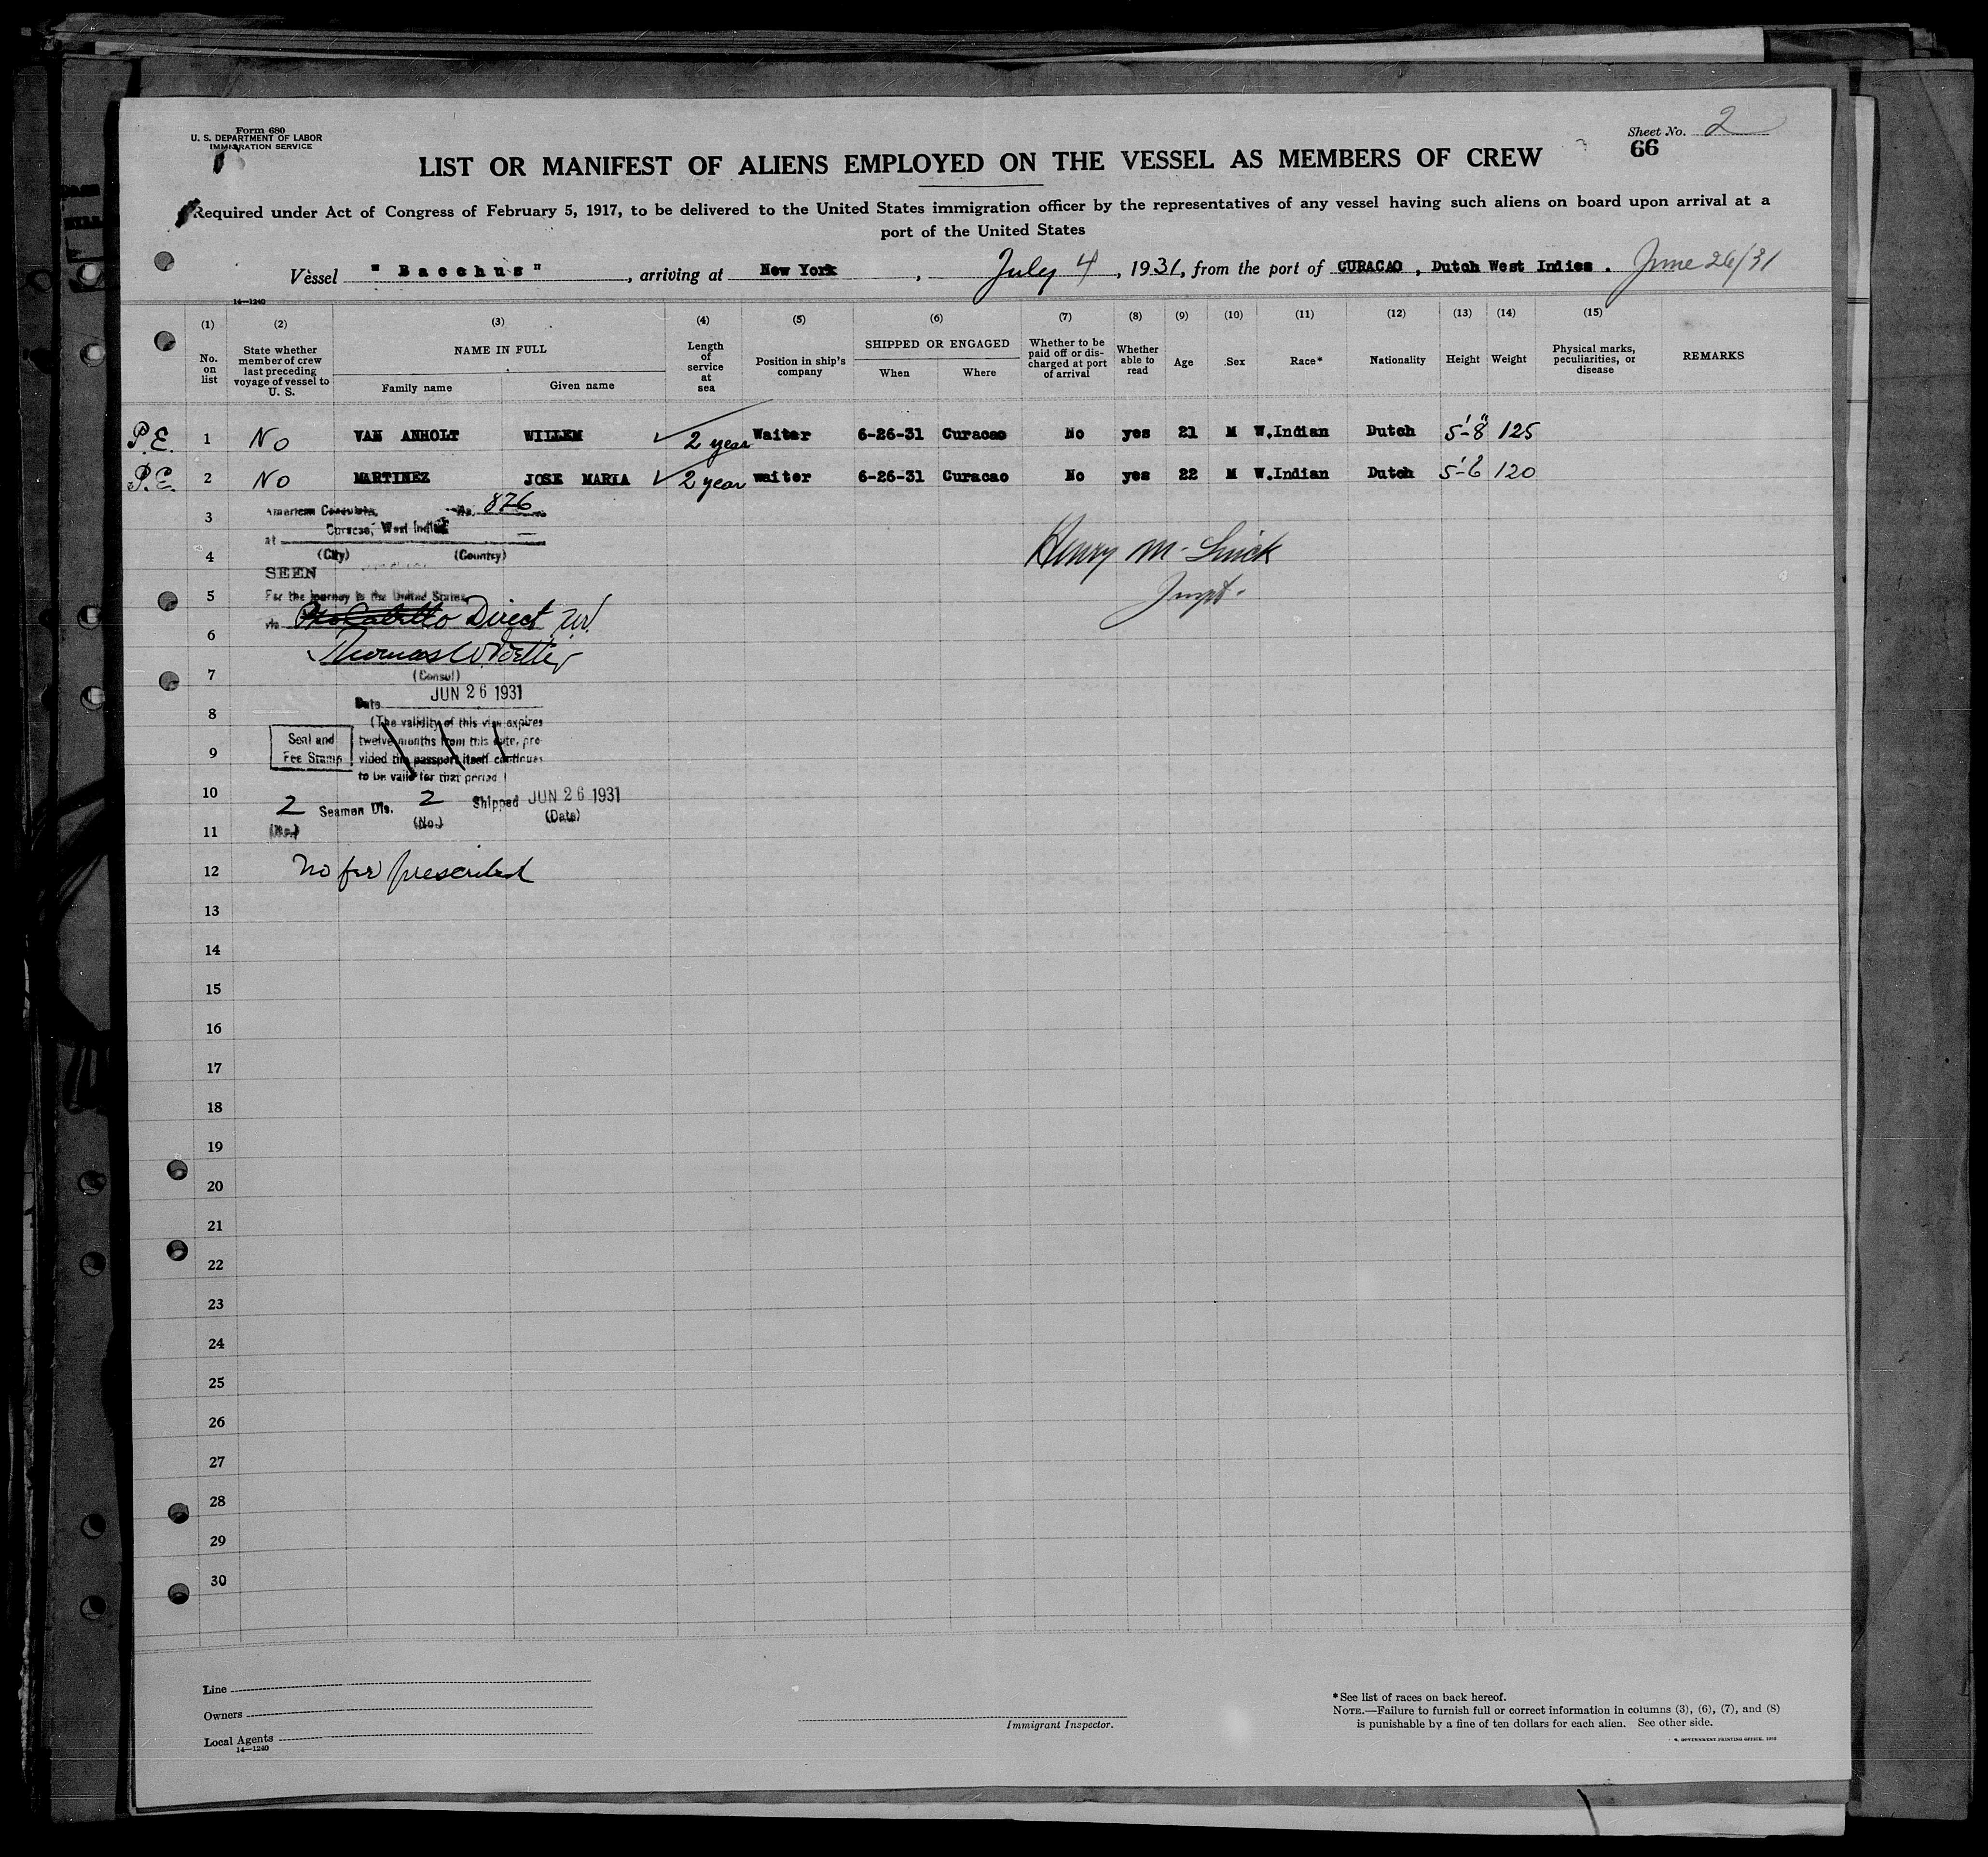 Form 680
U. S. DEPARTMENT OF LABOR
IMMIGRATION SERVICE
Sheet No. 2
66
LIST OR MANIFEST OF ALIENS EMPLOYED ON THE VESSEL AS MEMBERS OF CREW
Required under Act of Congress of February 5, 1917, to be delivered to the United States immigration officer by the representatives of any vessel having such aliens on board upon arrival at a
port of the United States
Vessel "Bacchus", arriving at New York, July 4, 1931, from the port of CURACAO, Dutch West Indies. June 26/31
14—1240
(1) (2) (3) (4) (5) (6) (7) (8) (9) (10) (11) (12) (13) (14) (15)
No. on list
State whether member of crew last preceding voyage of vessel to U. S.
NAME IN FULL
Family name
Given name
Length of service at sea
Position in ship's company
SHIPPED OR ENGAGED
When
Where
Whether to be paid off or discharged at port of arrival
Whether able to read
Age
Sex
Race*
Nationality
Height
Weight
Physical marks, peculiarities, or disease
REMARKS
P.E. 1 No VAN ANHOLT WILLEM 2 year Waiter 6-26-31 Curacao No yes 21 M W.Indian Dutch 5'-8" 125
P.E. 2 No MARTINEZ JOSE MARIA 2 year waiter 6-26-31 Curacao No yes 22 M W.Indian Dutch 5'-6 120
3
American Consulate, No. 876
at Curacao, West Indies
4
(City) (Country)
Henry M.
SEEN
5
For the journey to the United States
Inspt.
via Direct
6
Thomas W.
7
(Consul)
Date JUN 26 1931
8
(The validity of this visa expires
Seal and
Fee Stamp
twelve months from this date, pro-
9
vided the passport itself continues
to be valid for that period.)
10
2 Seamen Dis. 2 Shipped JUN 26 1931
(No.) (No.) (Date)
11
12
No fee prescribed
13
14
15
16
17
18
19
20
21
22
23
24
25
26
27
28
29
30
Line
Owners
Local Agents
14—1240
Immigrant Inspector.
*See list of races on back hereof.
NOTE.—Failure to furnish full or correct information in columns (3), (6), (7), and (8)
is punishable by a fine of ten dollars for each alien. See other side.
GOVERNMENT PRINTING OFFICE